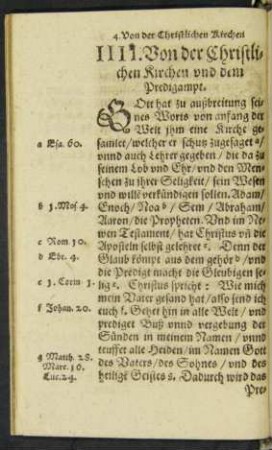 4. Von der Christlichen Kirchen
IIII. Von der Christli-
chen Kirchen vnd dem
Predigampt.
GOtt hat zu außbreitung sei-
nes Worts von anfang der
Welt jhm eine Kirche ge-
a Esa. 60.
samlet/welcher er schutz zugesaget a/
vnnd auch Lehrer gegeben/die da zu
seinem Lob vnd Ehr/vnd den Men-
schen zu jhrer Seligkeit/sein Wesen
vnd willē verkündigen sollen. Adam/
b 1. Mos 4.
Enoch/Noa b/Sem/Abraham/
Aaron/die Propheten. Vnd im Ne-
wen Testament/hat Christus vñ die
c Rom 10.
Aposteln selbst gelehret c. Denn der
d Ebr. 4.
Glaub kömpt aus dem gehör d/vnd
die Predigt macht die Gleubigen se-
e 1. Corin 1.
lig e. Christus spricht: Wie mich
mein Vater gesand hat/also send ich
f Johan. 20.
euch f. Gehet hin in alle Welt/vnd
prediget Buß vnnd vergebung der
Sünden in meinem Namen/vnnd
teuffet alle Heiden/im Namen Gott
g Matth. 28.
des Vaters/des Sohnes/vnd des
Marc. 16.
heilige Geistes g. Dadurch wird das
Luc. 24.
Pre-